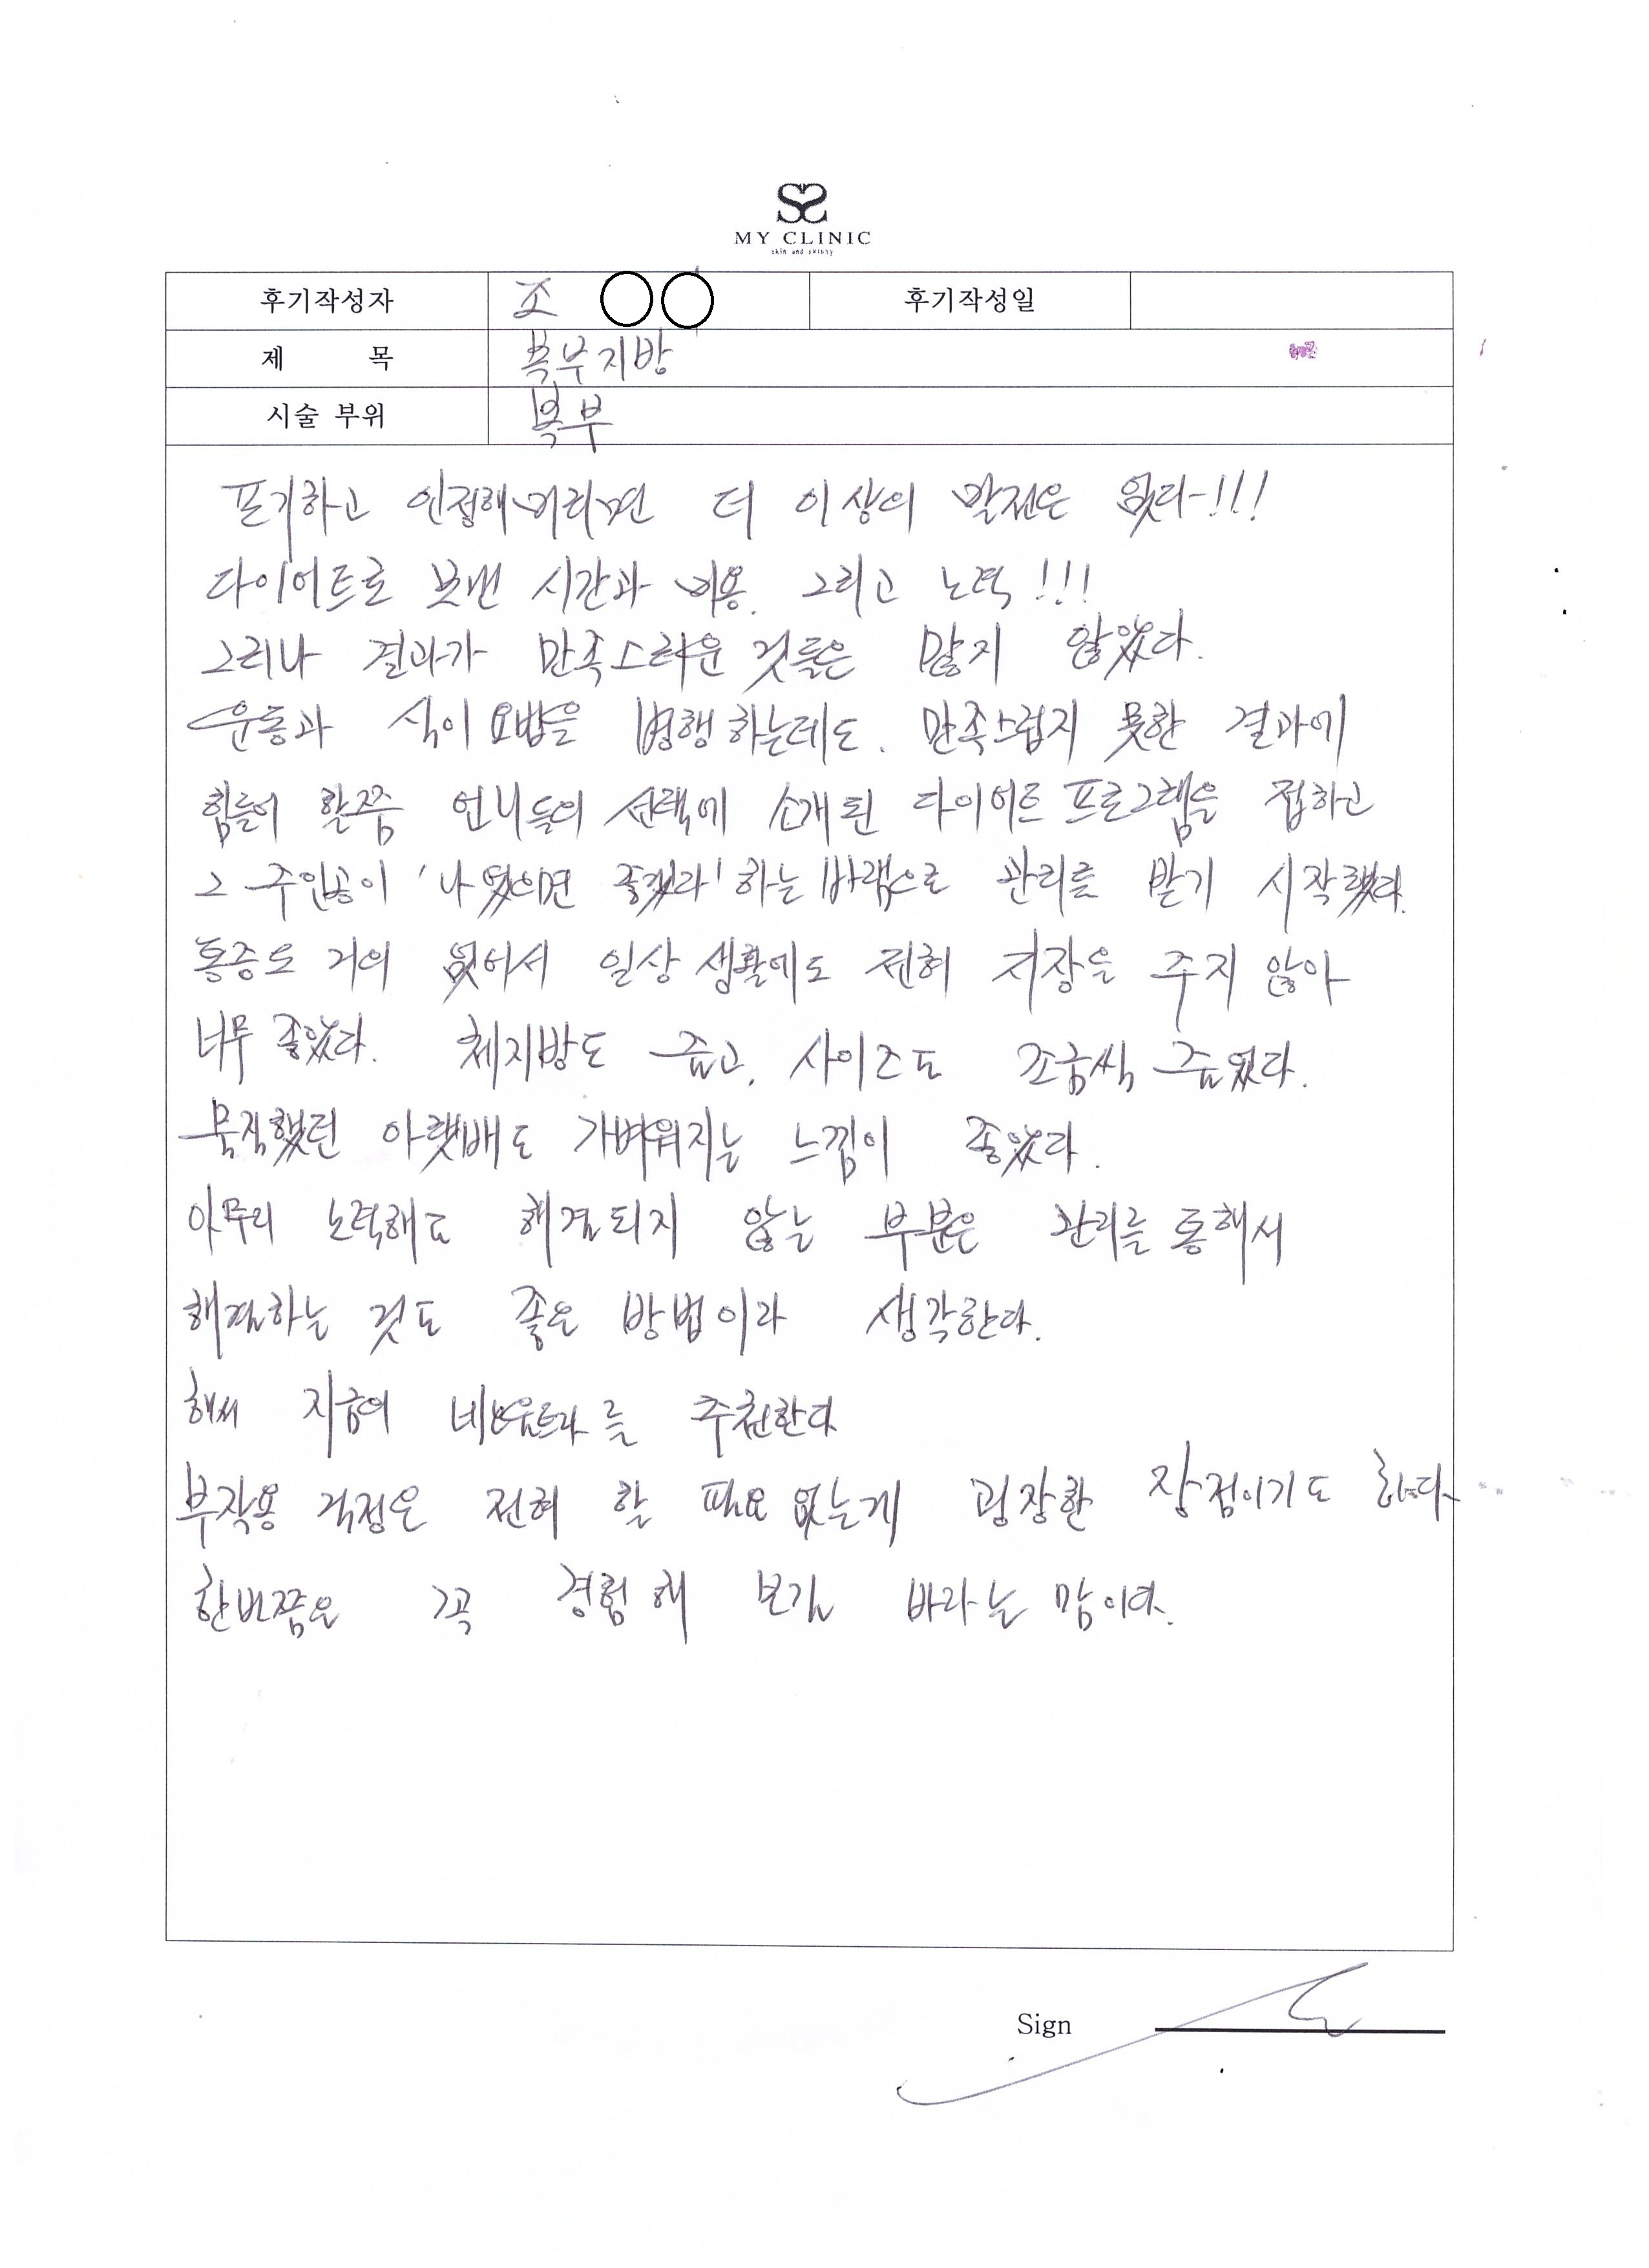 MY CLINIC
skin and skinny
후기작성자 조 ○○ 후기작성일
제 목 복부지방
시술 부위 복부
포기하고 인정해버리면 더 이상의 발전은 없다!!!
다이어트로 보낸 시간과 비용. 그리고 노력!!!
그러나 결과가 만족스러운 것들은 많지 않았다.
운동과 식이요법을 병행하는데도. 만족스럽지 못한 결과에
힘들어 할쯤 언니들의 선택에 소개된 다이어트 프로그램을 접하고
그 주인공이 '나였으면 좋겠다' 하는 바램으로 관리를 받기 시작했다.
통증도 거의 없어서 일상 생활에도 전혀 지장을 주지 않아
너무 좋았다. 체지방도 줄고, 사이즈도 조금씩 줄었다.
묵직했던 아랫배도 가벼워지는 느낌이 좋았다.
아무리 노력해도 해결되지 않는 부분은 관리를 통해서
해결하는 것도 좋은 방법이라 생각한다.
해서 지금의 를 추천한다
부작용 걱정은 전혀 할 필요 없는게 굉장한 장점이기도 하다
한번쯤은 꼭 경험해 보길 바라는 맘이다.
Sign